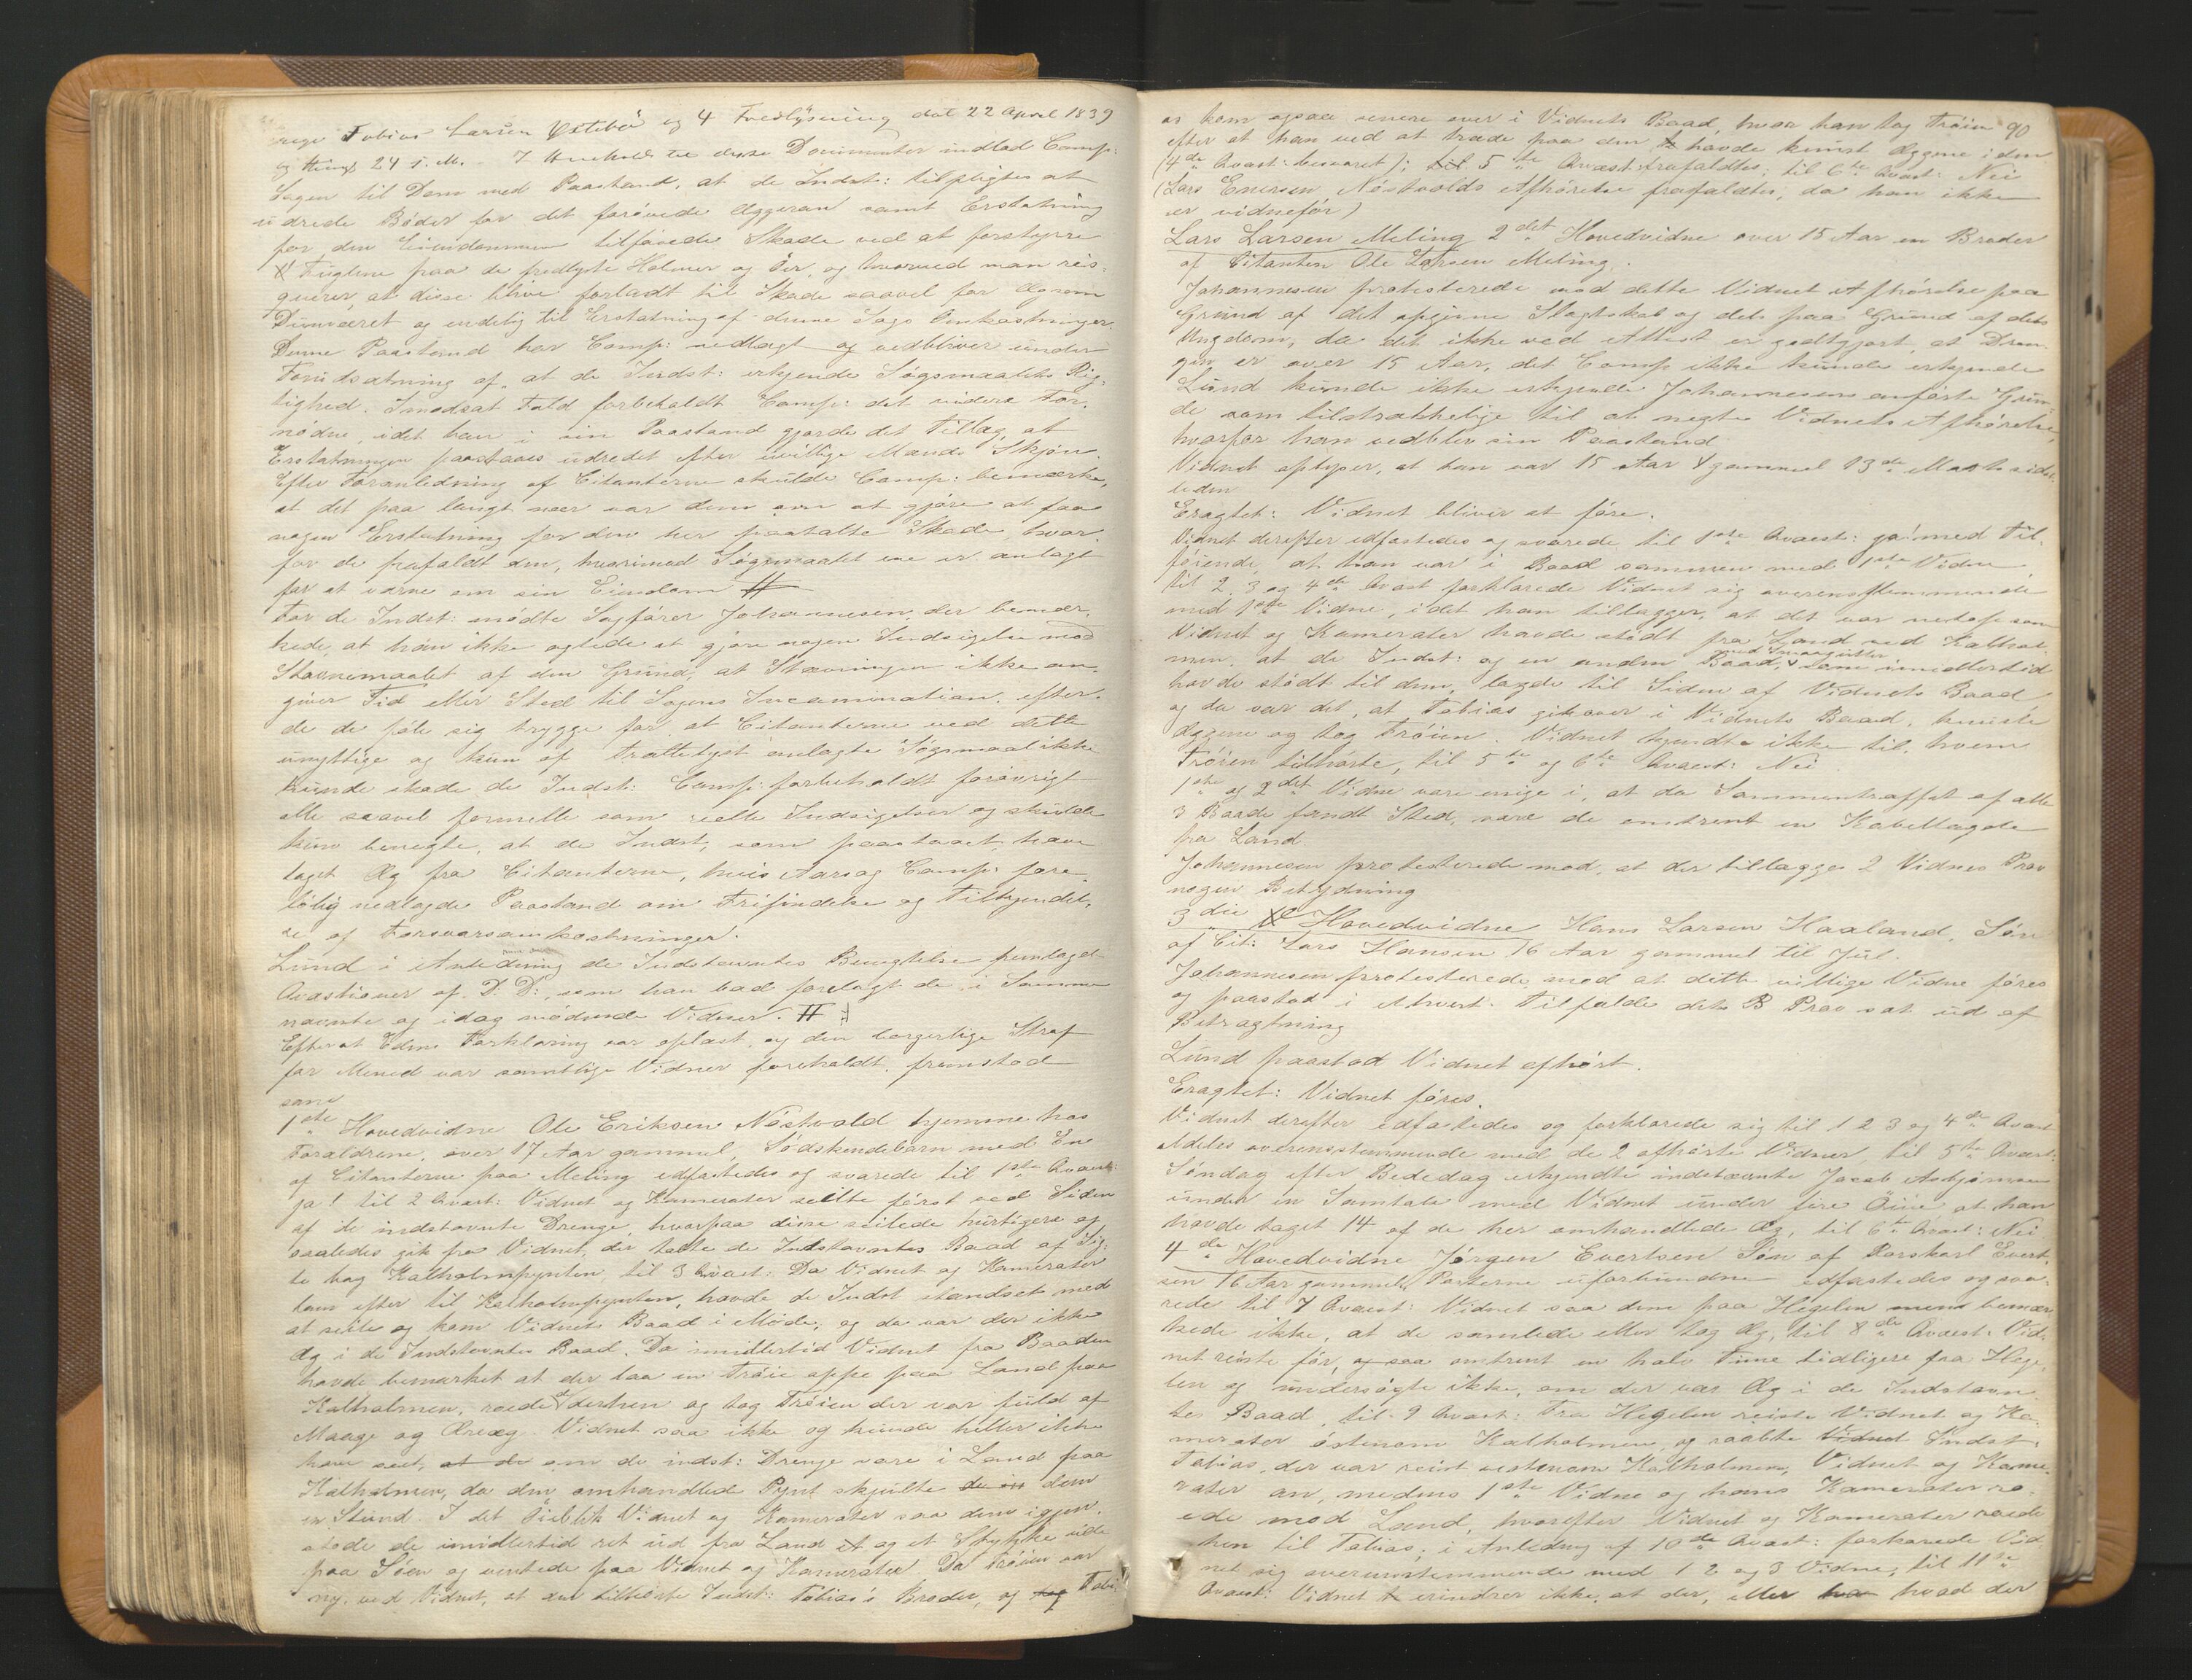 Tobias Larsen Østebø og 4 Fredlysning dat 22 April 1839
og tingl 24 s. M. I Henhold til disse Documenter indlod Comp:
Sagen til Dom med Paastand, at de Indst: tilpligtes at
udrede Bøder for det forøvede Æggeran samt Erstatning
for den Eiendommen tilføiede Skade ved at forstyrre
Fuglene paa de fredlyste Holmer og Øer, og hvorved man ris-
querer, at disse blive forladt til Skade saavel for Æg som
Duunværet og endelig til Erstatning af denne Sags Omkostninger.
Denne Paastand har Comp: nedlagt og vedbliver under
Forudsætning af, at de Indst: erkjende Søgsmaalets Rig-
tighed. I modsat Fald forbeholdt Comp: det videre For-
nødne, idet han i sin Paastand gjorde det Tillæg at
Erstatningen paastaaes udredet efter uvillige Mænds Skjøn.
Efter Foranledning af Citanterne skulde Comp: bemærke,
at det paa langt nær var dem om at gjøre at faa
nogen Erstatning for den her paatalte Skade, hvor-
for de frafaldt den, hvorimod Søgsmaalet ene er anlagt
for at værne om sin Eiendom #
For de Indst: mødte Sagfører Johannesen, der bemær-
kede, at han ikke agtede at gjøre nogen Indsigelse mod
Stævnemaalet af den Grund, at Stævningen ikke an-
giver Tid eller Sted til Sagens Incamination, efter-
de de føle sig trygge for at Citanterne ved dette
unyttige og kun af Trættelyst anlagte Søgsmaal ikke
kunde skade de Indst: Comp: forbeholdt forøvrigt
alle saavel formelle som reelle Indsigelser og skulde
kun benegte, at de Indst, som paastaaet, have
taget Æg fra Citanterne, hvis Aarsag Comp: fore-
løbig nedlagde Paastand om Frifindelse og Tilkjendel-
se af Forsvarsomkostninger.
Lund i Anledning de Indstevntes Benegtelse fremlagde
Qvæstioner af D: D:, som han bad forelagt de i Samme
nævnte og idag mødende Vidner. #
Efterat Edens Forklaring var oplæst, og den borgerlige Straf
for Meneed var samtlige Vidner foreholdt, fremstod
som
1ste Hovedvidne Ole Eriksen Nöstvold hjemme hos
Forældrene, over 17 Aar gammel, Sødskendebarn med En
af Citanterne paa Meling edfæstedes og svarede til 1ste Qvæst:
ja! til 2 Qvæst: Vidnet og Kamerater seilte først ved Siden
af de indstævnte Drenge, hvorpaa disse seilede hurtigere og
saaledes gik fra Vidnet, der tabte de Indstævntes Baad af Sig-
te bag Kalholmpynten, til 3 Qvæst: Da Vidnet og Kamerater
kom efter til Kalholmpynten, havde de Indst standset med
at seile og kom Vidnets Baad i Møde, og da var der ikke
Æg i de Indstævntes Baad. Da imidlertid Vidnet fra Baaden
havde bemærket at der laa en Trøie oppe paa Land paa
Kalholmen, roede de derhen og tog Trøien der var fuld af
Maage og Æreæg. Vidnet saa ikke og kunde heller ikke
have seet, at de om de indst: Drenge vare i Land paa
Kalholmen, da den omhandlede Pynt skjulte dem
en Stund. I det Öieblik Vidnet og Kamerater saa dem igjen,
stode de imidlertid ret ud fra Land og et Stykke ude
paa Søen og ventede paa Vidnet og Kamerater. Da Trøien var
ny, ved Vidnet, at den tilhørte Indst: Tobias's Broder, og Tobi-
90
as kom ogsaa senere over i Vidnets Baad, hvor han tog Trøien
efter at han ved at træde paa den havde knust Æggene i den
(4de Qvæst: besvaret); til 5te Qvæst: frafaldtes; til 6te Qvæst: Nei
(Lars Enersen Nöstvolds Afhörelse frafaldtes, da han ikke
er vidnefør)
Lars Larsen Meling 2det Hovedvidne over 15 Aar en Broder
af Citanten Ole Larsen Meling.
Johannesen protesterede mod dette Vidnes Afhörelse paa
Grund af det opgivne Slagtskab og dels paa Grund af dets
Ungdom, da det ikke ved Attest er godtgjort, at Dren-
gen er over 15 Aar, det Comp ikke kunde erkjende
Lund kunde ikke erkjende Johannesens anførte Grun-
de som tilstrækkelige til at negte Vidnets Afhörelse,
hvorfor han vedblev sin Paastand
Vidnet oplyser, at han var 15 Aar gammel 13de Marts sidst-
leden
Eragtet: Vidnet bliver at føre.
Vidnet derefter edfæstedes og svarede til 1ste Qvæst: ja! med Til-
føiende at han var i Baad sammen med 1ste Vidne,
til 2. 3 og 4de Qvæst forklarede Vidnet sig overensstemmende
med 1ste Vidne, idet han tillægger, at det var netop som
Vidnet og Kamerater havde stødt fra Land ved Kalhol-
men, at de Indst: og en anden Baad, med Smaagutter som imidlertid
havde stødt til dem, lagde til Siden af Vidnets Baad
og da var det, at Tobias gik over i Vidnets Baad, knuste
Æggene og tog Trøien. Vidnet kjendte ikke til, hvem
Trøien tilhørte, til 5te og 6te Qvæst: Nei.
1ste og 2det Vidne vare enige i, at da Sammentræffet af alle
3 Baade fandt Sted, vare de omtrent en Kabellægde
fra Land
Johannesen protesterede mod, at der tillægges 2 Vidnes Prov
nogen Betydning
3die Hovedvidne Hans Larsen Haaland, Søn
af Cit: Lars Hansen 16 Aar gammel til Jul.
Johannesen protesterede mod at dette villige Vidne føres
og paastod i ethvert Tilfælde dets Prov sat ud af
Betragtning
Lund paastod Vidnet afhørt.
Eragtet: Vidnet føres.
Vidnet derefter edfæstedes og forklarede sig til 1 2 3 og 4de Qvæst
aldeles overensstemmende med de 2 afhørte Vidner, til 5te Qvæst:
Søndag efter Bededag erkjendte indstævnte Jacob Asbjørnsen
under en Samtale med Vidnet under fire Öine at han
havde taget 14 af de her omhandlede Æg, til 6te Qvæst: Nei
4de Hovedvidne Jörgen Evertsen Søn af Porskarl Evert-
sen 16 Aar gammel, Parterne uforbunden edfæstedes og sva-
rede til 7 Qvæst: Vidnet saa dem paa Hegelen men bemær-
kede ikke, at de samlede eller tog Æg, til 8de Qvæst: Vid-
net reiste før, og saa omtrent en halv Time tidligere fra Hege-
len og undersøgte ikke, om der var Æg i de Indstævn-
tes Baad, til 9 Qvæst: Fra Hegelen reiste Vidnet og Ka-
merater østenom Kalholmen, og raabte Vidnet Indst:
Tobias, der var reist vestenom Kalholmen, Vidnet og Kame-
rater an, medens 1ste Vidne og hans Kamerater ro-
ede mod Land, hvorefter Vidnet og Kamerater roede
hen til Tobias; i Anledning af 10de Qvæst: forklarede Vid-
net sig overensstemmende med 1 2 og 3 Vidne, til 11te
Qvæst: Vidnet erindrer ikke, at der, eller hvad der